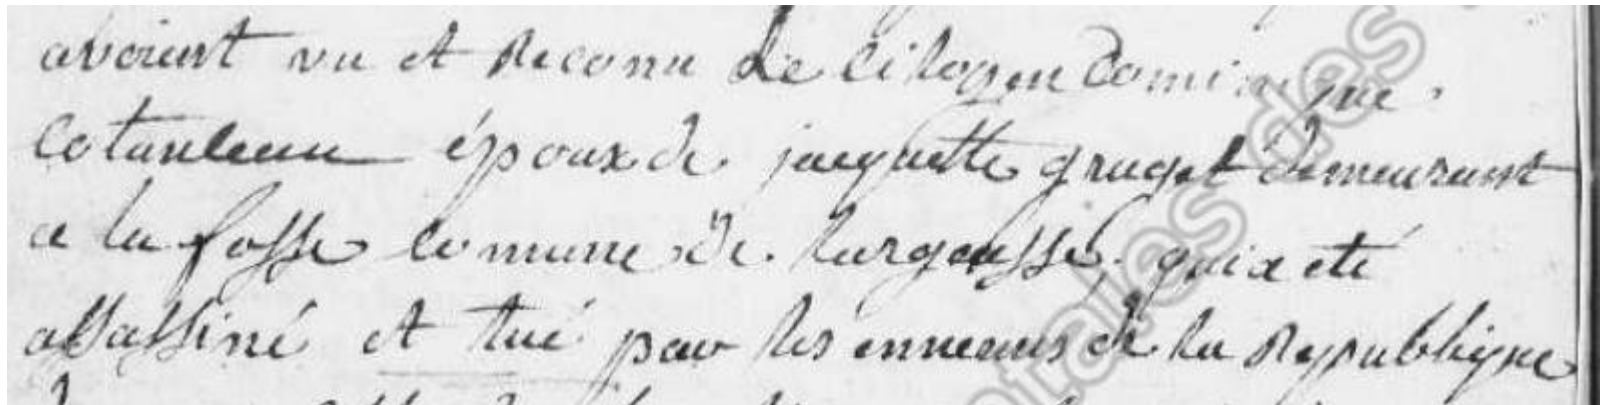 avoient vu et Reconu Le Citoyen Dominique
Cotanceau époux de jacquette gruget demeurant
a la fosse Comune de Largeasse, qui a eté
assassiné et tué par les ennemis de la Republique